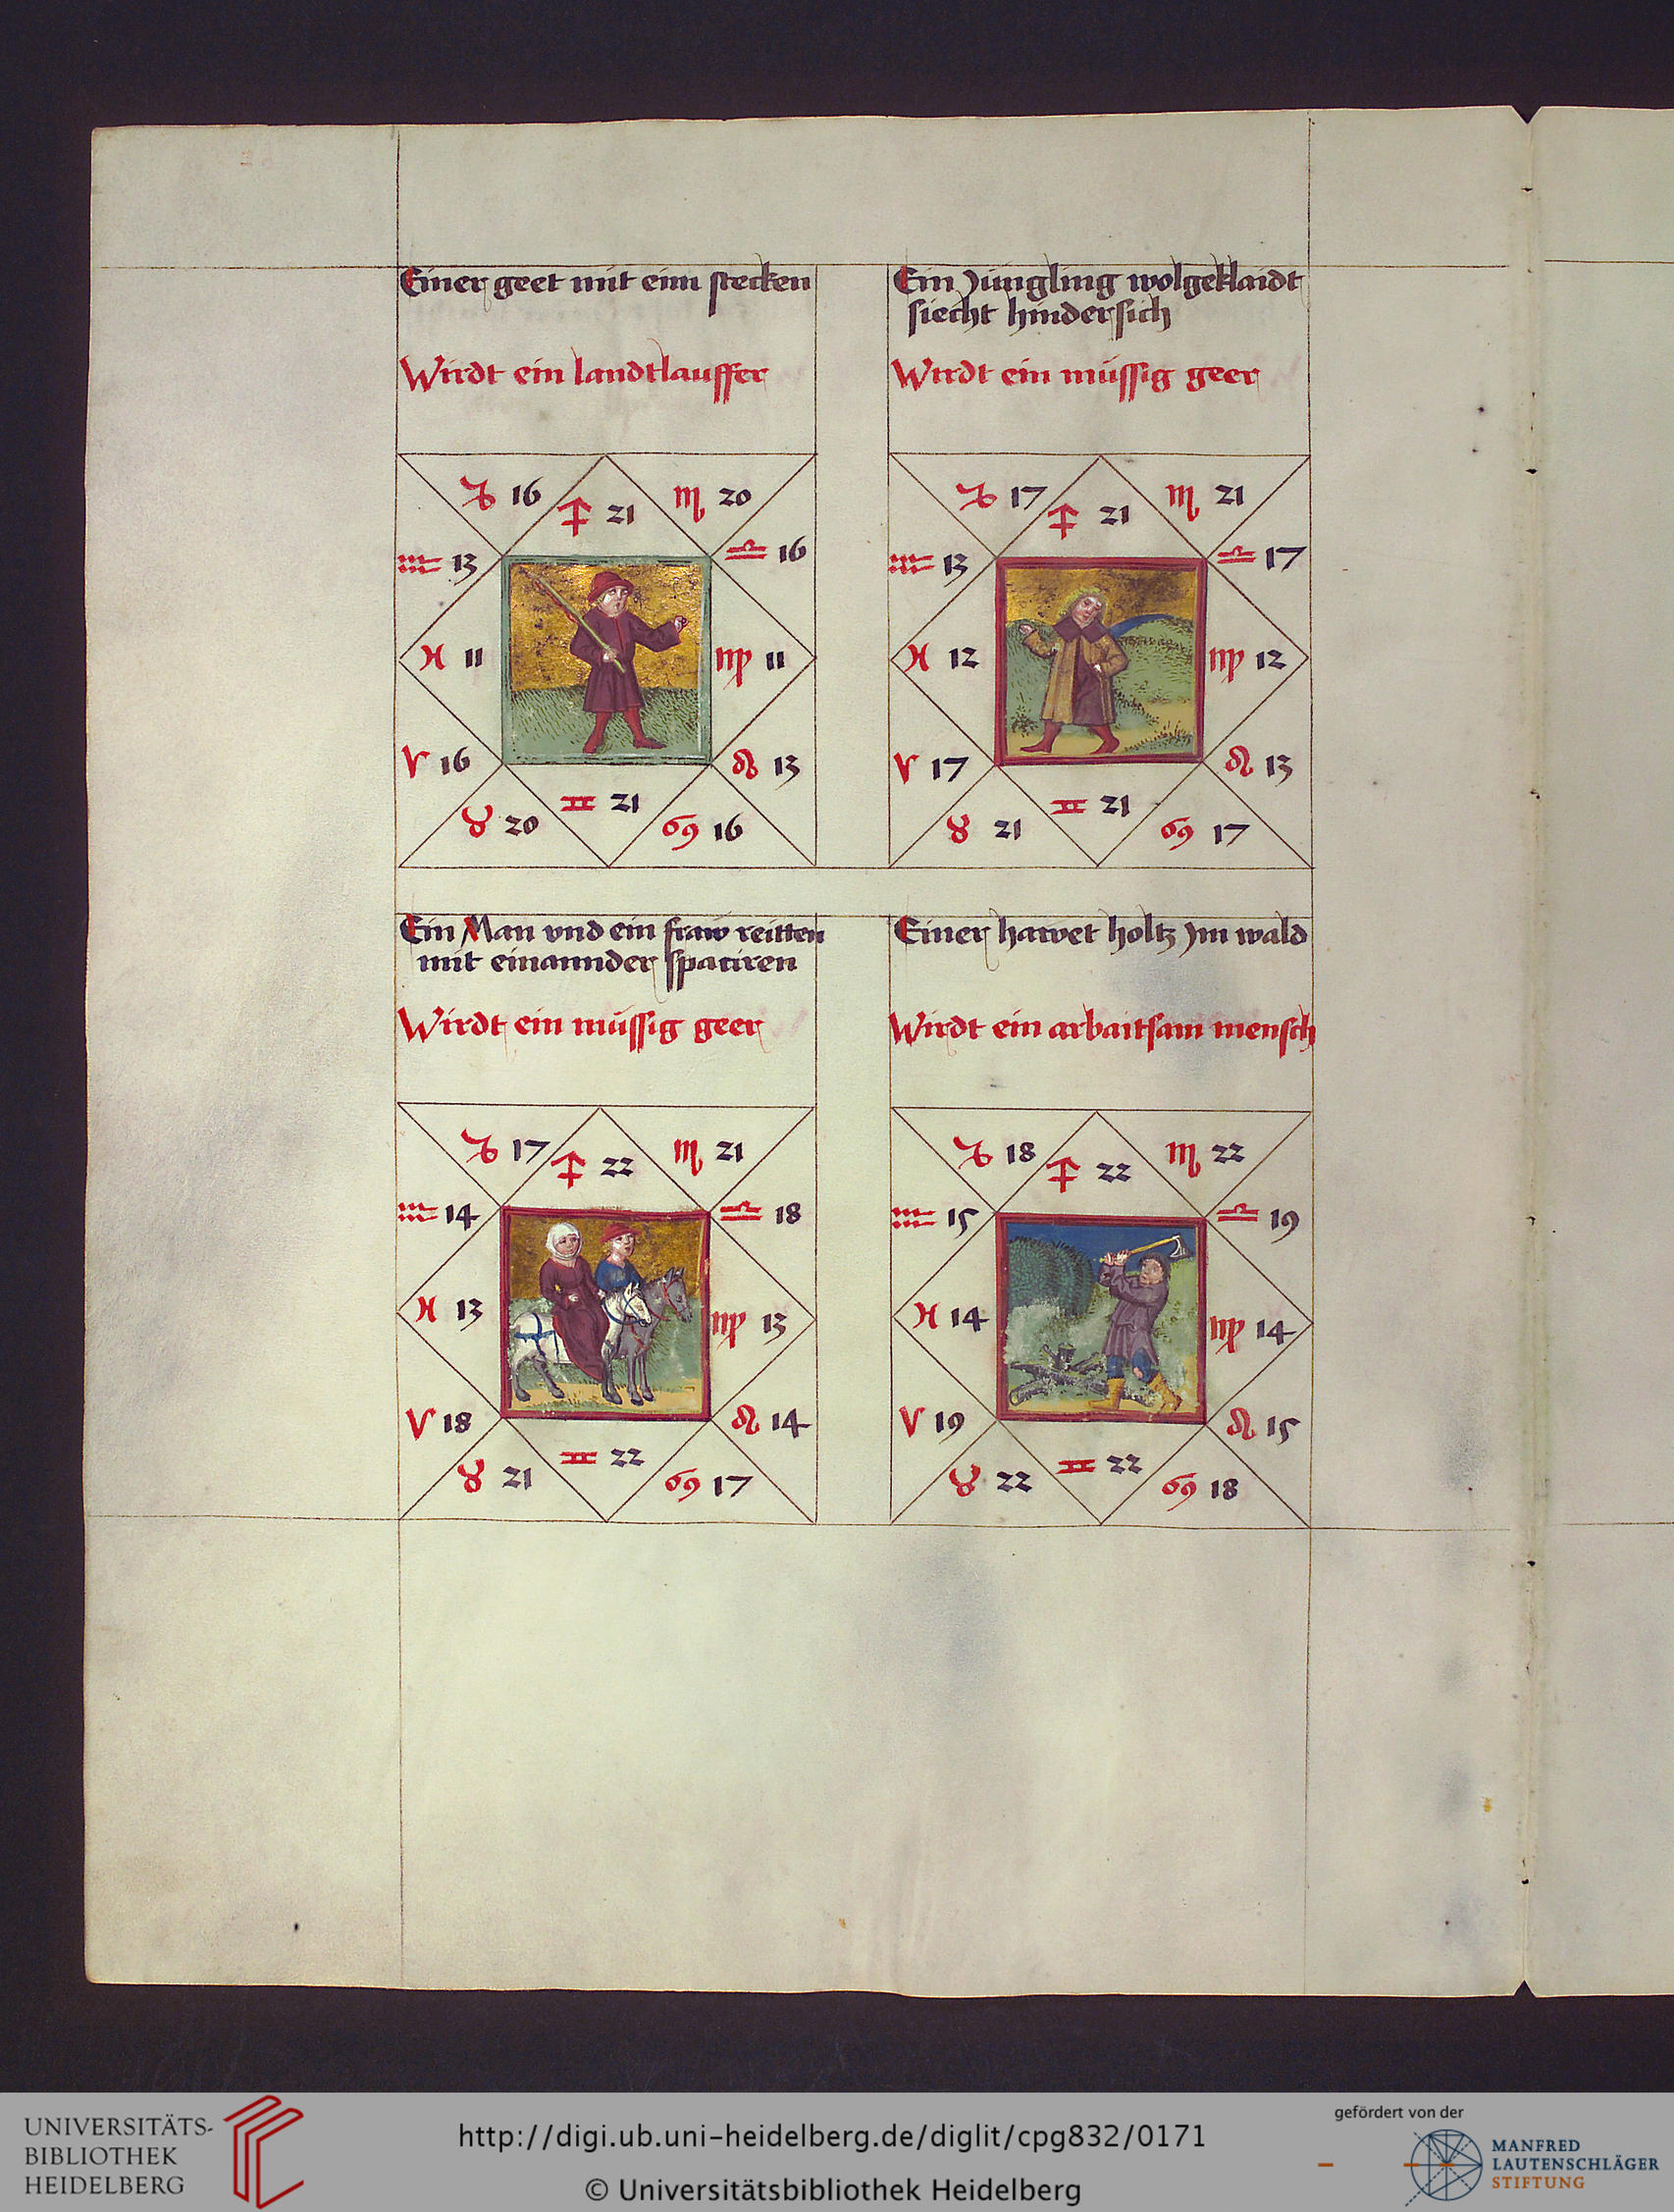 Einer geet mit eim stecken
Wirdt ein landtlauffer
♑ 16
♐ 21
♏ 20
♒ 13
♎ 16
♓ 11
♍ 11
♈ 16
♌ 13
♊ 21
♉ 20
♋ 16
Ein Jüngling wolgeklaidt
siecht hindersich
Wirdt ein müssig geer
♑ 17
♐ 21
♏ 21
♒ 13
♎ 17
♓ 12
♍ 12
♈ 17
♌ 13
♊ 21
♉ 21
♋ 17
Ein Man vnd ein fraw reitten
mit einannder spaciren
Wirdt ein müssig geer
♑ 17
♐ 22
♏ 21
♒ 14
♎ 18
♓ 13
♍ 13
♈ 18
♌ 14
♊ 22
♉ 21
♋ 17
Einer hawet holtz Jm wald
Wirdt ein arbaitsam mensch
♑ 18
♐ 22
♏ 22
♒ 15
♎ 19
♓ 14
♍ 14
♈ 19
♌ 15
♊ 22
♉ 22
♋ 18
UNIVERSITÄTS-
BIBLIOTHEK
HEIDELBERG
http://digi.ub.uni-heidelberg.de/diglit/cpg832/0171
© Universitätsbibliothek Heidelberg
gefördert von der
MANFRED
LAUTENSCHLÄGER
STIFTUNG